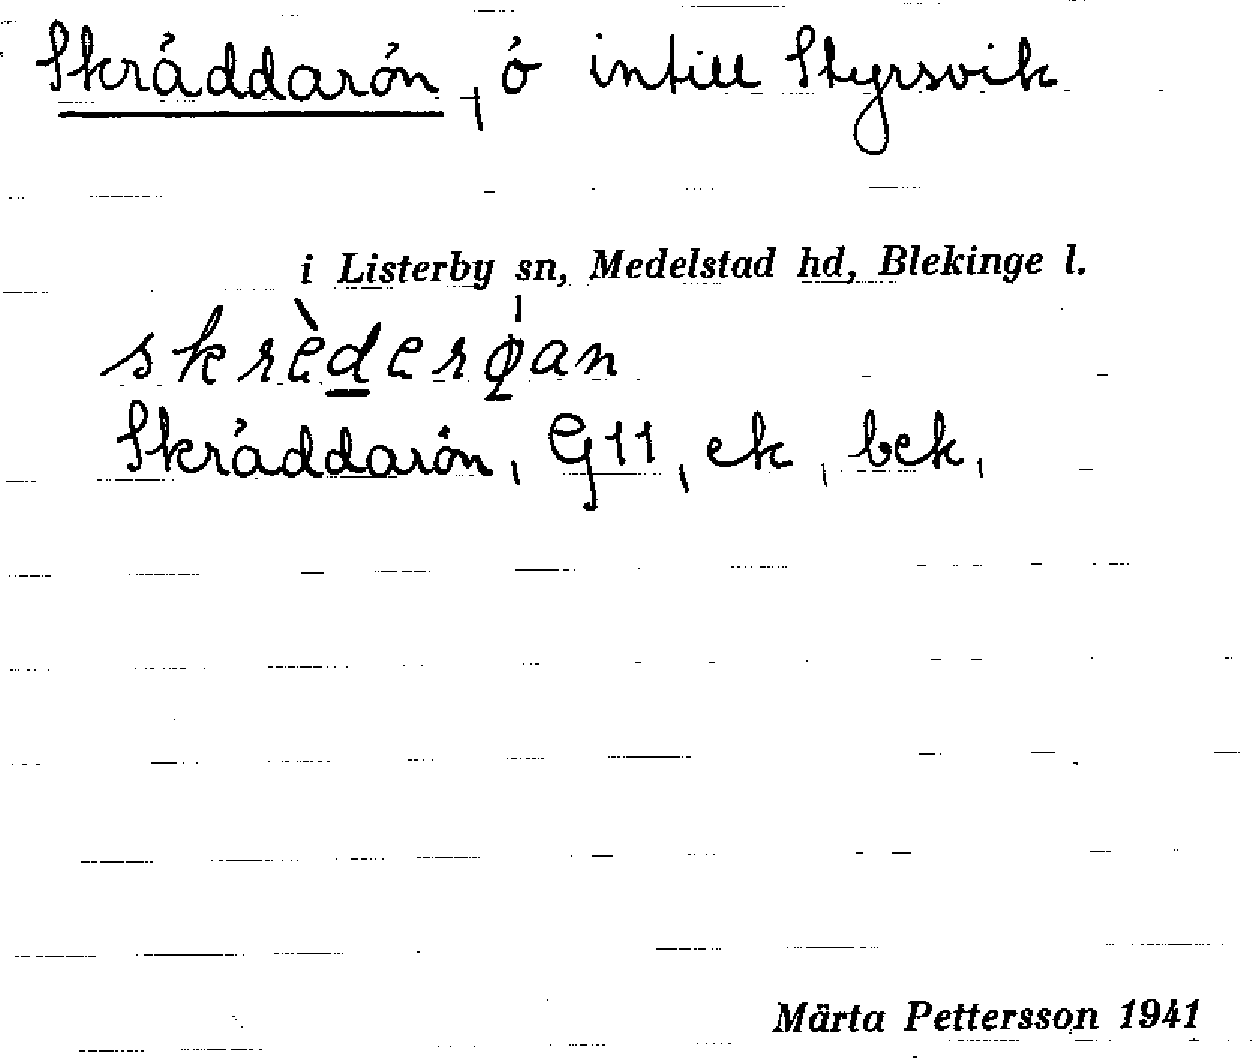 Skräddarön, ö intill Styrsvik
i Listerby sn, Medelstad hd, Blekinge l.
skrèderøan
Skräddarön, G11, ek, bek,
Märta Pettersson 1941